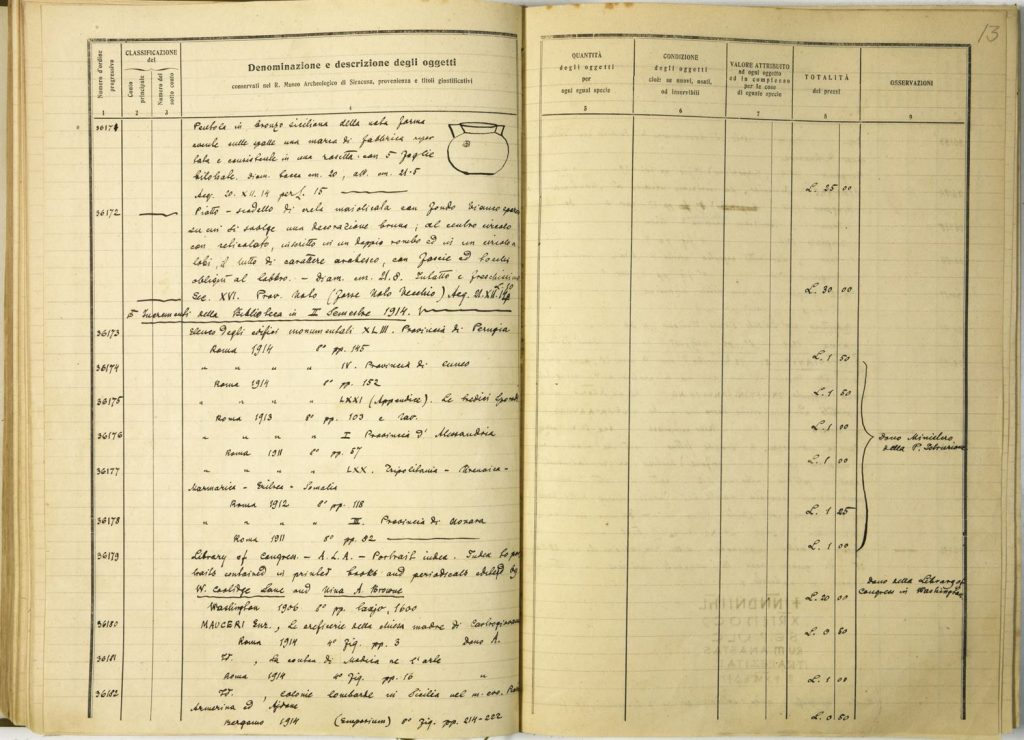 13
Numero d'ordine progressivo
CLASSIFICAZIONE del
Conto principale
Numero del sotto conto
Denominazione e descrizione degli oggetti
conservati nel R. Museo Archeologico di Siracusa, provenienza e titoli giustificativi
QUANTITÀ degli oggetti per ogni egual specie
CONDIZIONE degli oggetti cioè: se nuovi, usati, od inservibili
VALORE ATTRIBUITO ad ogni oggetto ed in complesso per le cose di eguale specie
TOTALITÀ dei prezzi
OSSERVAZIONI
1 2 3 4 5 6 7 8 9
36171 Pentola in bronzo siciliana della nota forma
avente sulle spalle una marca di fabbrica
e consistente in una rosetta con 5 foglie
bilobate. diam. bocca cm. 20, alt. cm. 21.5
Acq. 20. XII. 14 per L. 15 L. 25 00
36172 Piatto - scodello di creta maiolicata con fondo bianco
su cui si svolge una decorazione bruna; al centro circolo
con reticolato, inscritto in un doppio rombo ed in un circolo a
lobi, il tutto di carattere arabesco, con fascie ed
obliqui al labbro. - diam. cm. 21.8. Intatto e freschissimo
Sec. XVI. Prov. Noto (forse Noto Vecchio) Acq. 21. XII. L. 30 00
Incrementi della Biblioteca in II Semestre 1914.
36173 Elenco degli edifici monumentali XLIII. Provincia di Perugia
Roma 1914 8° pp. 145 L. 1 50
36174 " " " " IV. Provincia di Cuneo
Roma 1914 8° pp. 152 L. 1 50
36175 " " " " LXXI (Appendice). Le tredici Sporadi
Roma 1913 8° pp. 103 e tav. L. 1 00
36176 " " " " I Provincia d'Alessandria
Roma 1911 8° pp. 67 L. 1 00
36177 " " " " LXX. Tripolitania - Cirenaica -
Marmarica - Eritrea - Somalia
Roma 1912 8° pp. 118 L. 1 25
36178 " " " " III. Provincia di Novara
Roma 1911 8° pp. 82 L. 1 00
Dono Ministero
della P. Istruzione
36179 Library of Congress - A.L.A. - Portrait index. Index to por
traits contained in printed books and periodicals edited by
W. Coolidge Lane and Nina A. Browne
Washington 1906 8° pp. 1600 L. 20 00
Dono della Library of
Congress in Washington
36180 MAUCERI Enr., Le oreficerie della chiesa madre di Castrogiovanni
Roma 1914 4° fig. pp. 3 Dono A. L. 0 50
36181 Id., La contea di Modica ne l'arte
Roma 1914 4° fig. pp. 16 " L. 1 00
36182 Id., Colonie lombarde in Sicilia nel m. evo.
Armerina ed Aidone
Bergamo 1914 (Emporium) 8° fig. pp. 214-222 L. 0 50